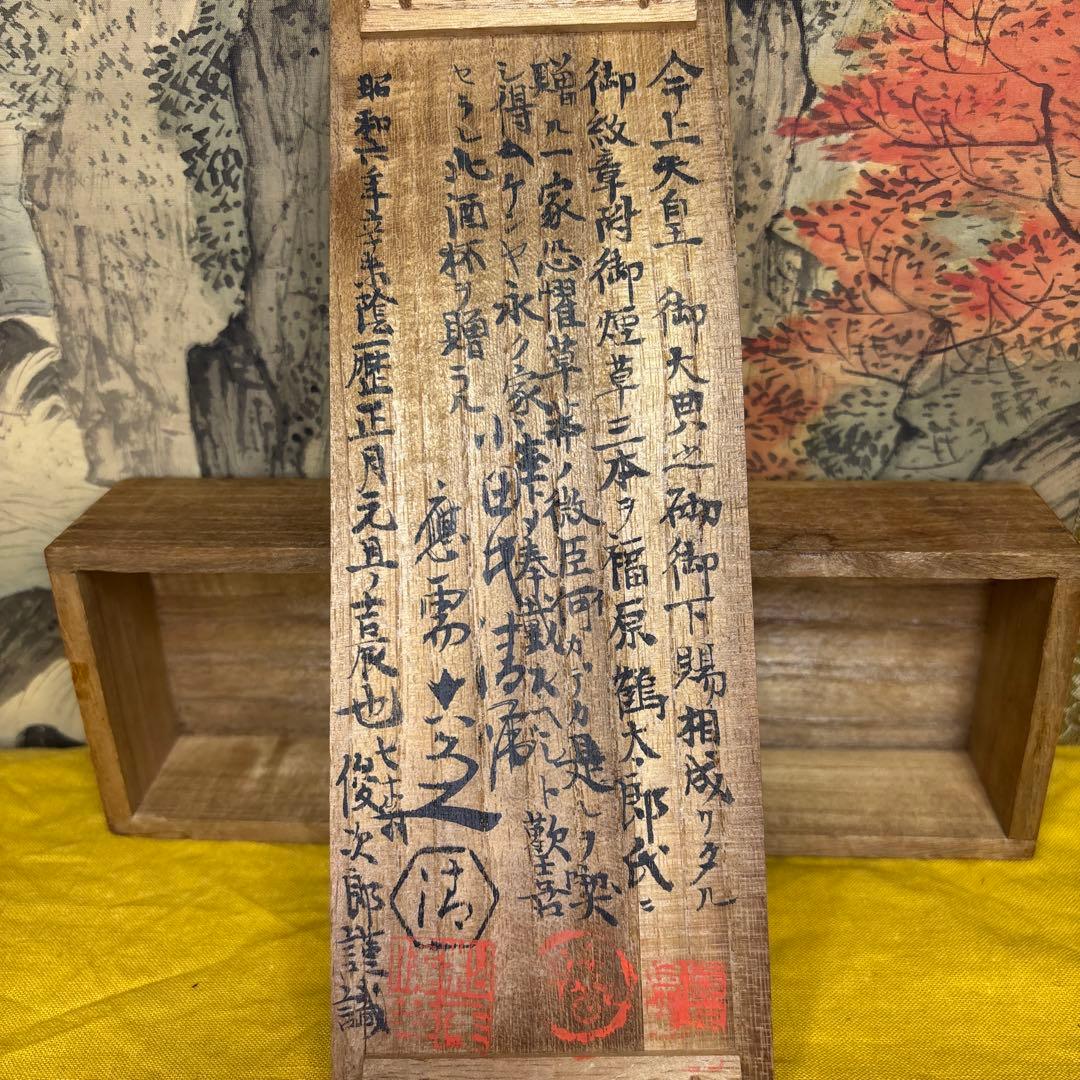 今上天皇 御大典之砌御下賜相成リタル
御紋章附御煙草三本ヲ福原鶴太郎氏ニ
贈ル一家恐懼草莽ノ微臣何カアカ是レヲ喫
シ得ヘケンヤ永ク家ニ奉捧戴スヘシト歓喜
セラレ此酒杯ヲ贈ラル
小田
應需
之
昭和六年 陰暦正月元旦ノ吉辰也
俊次郎謹識